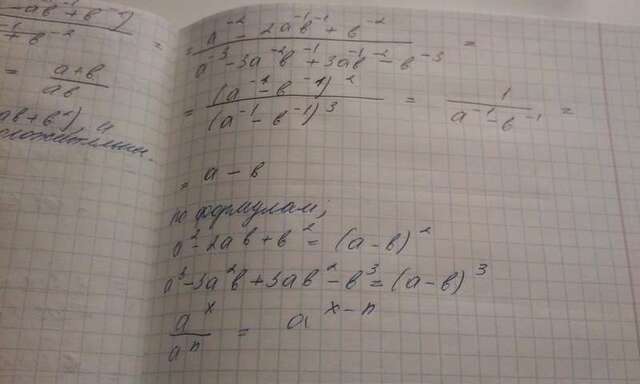 -ab⁻¹+b⁻²)
⁻¹+b⁻²
= (a+b)/(ab)
ab+b²) и
= (a⁻² - 2a⁻¹b⁻¹ + b⁻²)/(a⁻³ - 3a⁻²b⁻¹ + 3a⁻¹b⁻² - b⁻³) =
= (a⁻¹ - b⁻¹)²/(a⁻¹ - b⁻¹)³ = 1/(a⁻¹ - b⁻¹) =
= a - b
по формулам;
a² - 2ab + b² = (a - b)²
a³ - 3a²b + 3ab² - b³ = (a - b)³
aˣ/aⁿ = aˣ⁻ⁿ